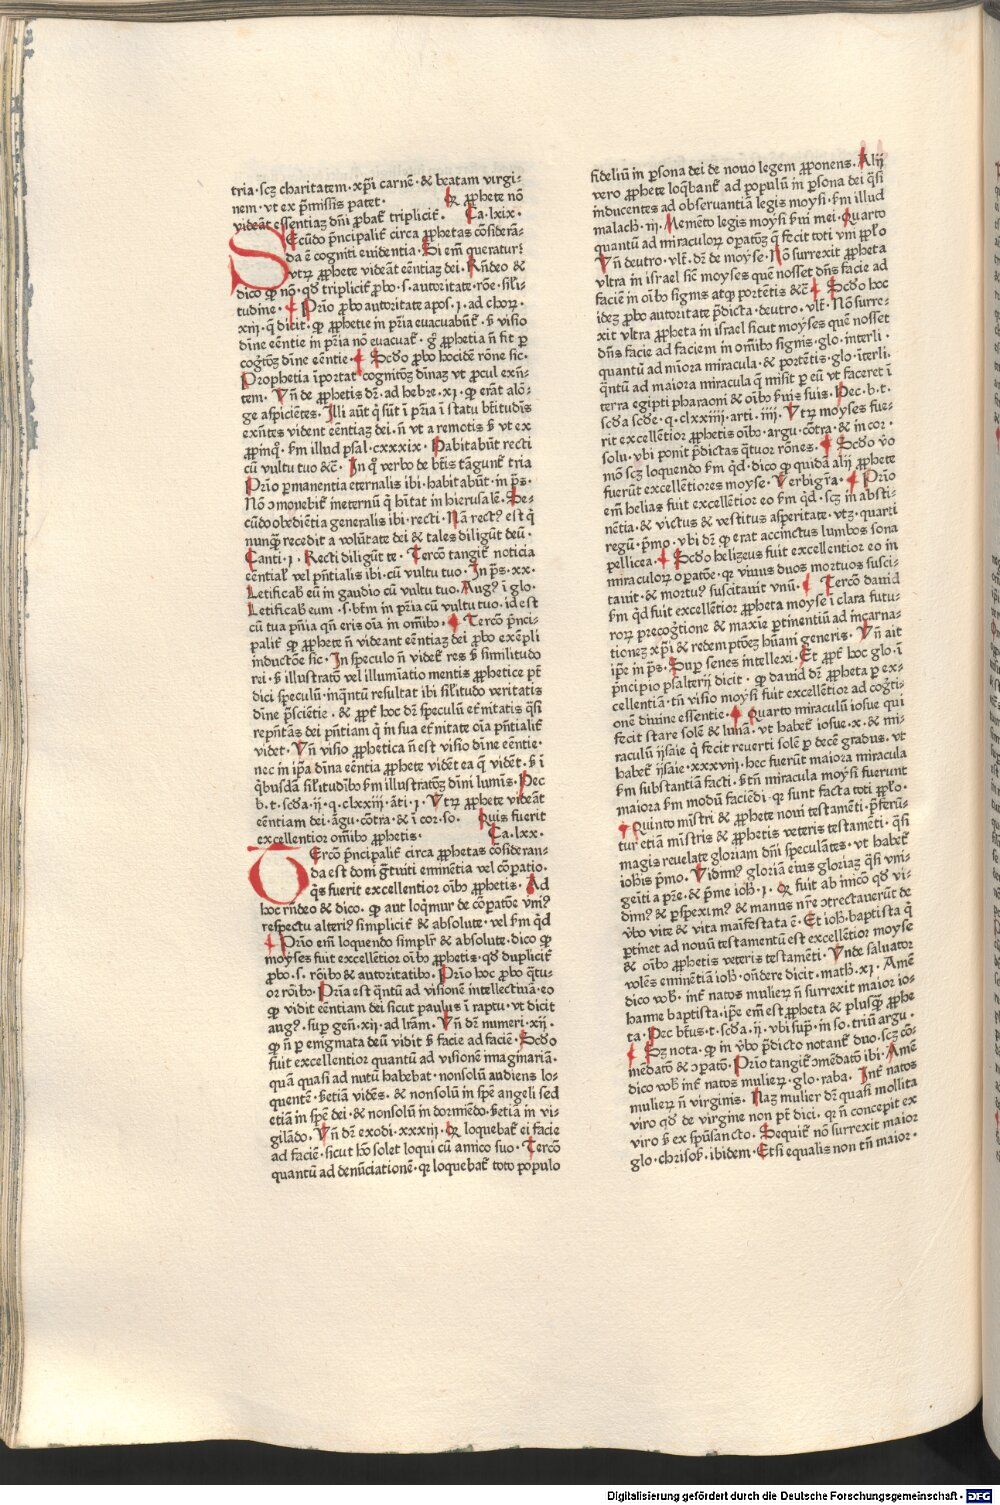 tria·scȝ charitatem·xp̄i carnē·& beatam virgi-
nem·vt ex p̄missis patet· Q ꝓphete nō
vidēat essentiaȝ dn̄i ꝓbat᷑ triplicit᷑. Ca·lxix·
SEcūdo p̄ncipalit᷑ circa ꝓphetas cōsiderā-
da ē cogniti euidentia·Si em̄ queratur:
vtꝝ ꝓphete videāt eēntiaȝ dei·Rn̄deo &
dico ꝙ nō·qd̄ triplicit᷑ ꝓbo·s·autoritate·rōe·sili-
tudine· Prīo ꝓbo autoritate apos·i·ad choꝝ·
xiij·q̄ dicit·ꝙ ꝓphetie in pr̄ia euacuabūt᷑·s̄ visio
dīne eēntie in pr̄ia nō euacuat᷑·g̊ ꝓphetia n̄ fit ꝑ
cog̊tōȝ dīne eēntie· Scd̄o ꝓbo hocidē rōne sic·
Prophetia īportat cognitōȝ dīnaȝ vt ꝓcul exn̄-
tem· Vn̄ de ꝓphetis dr̄·ad hebre·xi·ꝙ erāt alō-
ge aspiciētes·Illi aūt q̄ sūt ī pr̄ia ī statu bt̄itudīs
exn̄tes vident eēntiaȝ dei·n̄ vt a remotis s̄ vt ex
ꝓpīnq̊·ẜm illud psal·cxxxix·Habitabūt recti
cū vultu tuo &c̄· In q̊ verbo de bt̄is tāgunt᷑ tria
Prīo ꝑmanentia eternalis ibi·habitabūt·in p̄s·
Nō ꝯmouebit᷑ ineternū q̄ hītat in hierusalē·Se-
cūdo obediētia generalis ibi·recti·Nā rectꝰ est q̄
nunꝙ recedit a volūtate dei & tales diligūt deū·
Canti·i·Recti diligūt te·Tercō tangit᷑ noticia
eēntial᷑ vel pn̄tialis ibi·cū vultu tuo·In p̄s·xx·
Letificab̄ eū in gaudio cū vultu tuo·Augꝰ ī glo·
Letificab̄ eum·s·bt̄m in pr̄ia cū vultu tuo·id est
cū tua pn̄ia qn̄ eris oīa in om̄ibꝰ· Tercō p̄nci-
palit᷑ ꝙ ꝓphete n̄ videant eēntiaȝ dei ꝓbo exēpli
inductōe sic·In speculo n̄ videt᷑ res s̄ similitudo
rei·s̄ illustratō vel illumīatio mentis ꝓphetice pt̄
dici speculū·inq̄ntū resultat ibi sil̄itudo veritatis
dīne p̄sciētie·& ꝓpt᷑ hoc dr̄ speculū et̄nitatis q̄si
repn̄tās dei pn̄tiam q̄ in sua et̄nitate oīa pn̄tialit᷑
videt·Vn̄ visio ꝓphetica n̄ est visio dīne eēntie·
nec in ip̄a dīna eēntia ꝓphete vidēt ea q̄ vidēt·s̄ ī
q̄busdā sil̄itudībꝰ ẜm illustratōȝ dīni lumīs·Hec
b·t·scd̄a·ij·q·clxxiij·āti·i·Vtꝝ ꝓphete videāt
eēntiam dei·āgu·cōtra·& ī cor·so· Quis fuerit
excellentior om̄ibꝰ ꝓphetis· Ca·lxx·
TErcō p̄ncipalit᷑ circa ꝓphetas cōsideran-
da est doni g̊tuiti eminētia vel cōꝑatio·
q̄s fuerit excellentior oībꝰ ꝓphetis·Ad
hoc rn̄deo & dico·ꝙ aut loq̄mur de cōꝑatōe vniꝰ
respectu alteriꝰ simplicit᷑ & absolute·vel ẜm q̄d
Prīo em̄ loquendo simplr̄ & absolute·dico ꝙ
moyses fuit excellētior oībꝰ ꝓphetis·qd̄ duplicit᷑
ꝓbo·s·rōibꝰ & autoritatibꝰ·Prīo hoc ꝓbo q̄tu-
or rōibꝰ·Prīa est q̄ntū ad visionē intellectiuā·eo
ꝙ vidit eēntiam dei sicut paulus ī raptu·vt dicit
augꝰ·suꝑ gen̄·xij·ad lr̄am·Vn̄ dr̄ numeri·xij·
ꝙ n̄ ꝑ enigmata deū vidit s̄ facie ad faciē·Scd̄o
fuit excellentior quantū ad visionē imaginariā·
quā quasi ad nutū habebat·nonsolū audiens lo-
quentē·s̄etiā vidēs·& nonsolū in spē angeli sed
etiā in spē dei·& nonsolū in dormiēdo·s̄etiā in vi-
gilādo·Vn̄ dr̄ exodi·xxxiij·Q loquebat᷑ ei facie
ad faciē·sicut hō solet loqui cū amico suo·Tercō
quantū ad denūciationē·qꝛ loquebat᷑ toto populo
fideliū in ꝑsona dei de nouo legem ꝓponens·Alij
vero ꝓphete loq̄bant᷑ ad populū in ꝑsona dei q̄si
inducentes ad obseruantiā legis moysi·ẜm illud
malach·iij·Memēto legis moysi ẜui mei·Quarto
quantū ad miraculoꝝ oꝑatōȝ q̄ fecit toti vni ppl̄o
Vn̄ deutro·vlt᷑·dr̄ de moyse·Nō surrexit ꝓpheta
vltra in israel sic̄ moyses quē nosset dn̄s facie ad
faciē in oībꝰ signis atqꝫ portētis &c̄· Scd̄o hoc
ideȝ ꝓbo autoritate p̄dicta·deutro·vlt᷑·Nō surre-
xit vltra ꝓpheta in israel sicut moyses quē nosset
dn̄s facie ad faciem in om̄ibꝰ signis·glo·interli·
quantū ad mīora miracula·& portētis·glo·īterli·
q̄ntū ad maiora miracula q̄ misit ꝑ eū vt faceret ī
terra egipti pharaoni & oībꝰ ẜuis suis·Hec·b·t·
scd̄a scd̄e·q·clxxiiij·arti·iiij·Vtꝝ moyses fue-
rit excellētior ꝓphetis oībꝰ·argu·cōtra·& in cor·
solu·vbi ponit p̄dictas q̄tuor rōnes· Scd̄o v̊o
mō scȝ loquendo ẜm q̄d·dico ꝙ quidā alij ꝓphete
fuerūt excellētiores moyse·Verbigr̄a· Prīo
em̄ helias fuit excellētior eo ẜm q̄d·scȝ in absti-
nētia·& victus & vestitus asperitate·vtȝ·quarti
regū·p̄mo·vbi dr̄ ꝙ erat accinctus lumbos sona
pellicea· Scd̄o helizeus fuit excellentior eo in
miraculoꝝ oꝑatōe·qꝛ viuus duos mortuos susci-
tauit·& mortuꝰ suscitauit vnū· Tercō dauid
ẜm q̄d fuit excellētior ꝓpheta moyse ī clara futu-
roꝝ precog̊tione & maxīe ꝑtinentiū ad incarna-
tioneȝ xp̄i & redemptōeȝ hūani generis·Vn̄ ait
ip̄e in p̄s·Suꝑ senes intellexi·Et ꝓpt᷑ hoc glo·ī
p̄ncipio psalterij dicit·ꝙ dauid dr̄ ꝓpheta ꝑ ex-
cellentiā·tn̄ visio moysi fuit excellētior ad cog̊ti-
onē diuine essentie· Quarto miraculū iosue qui
fecit stare solē & lunā·vt habet᷑ iosue·x·& mi-
raculū ysaie q̄ fecit reuerti solē ꝑ decē gradus·vt
habet᷑ ysaie·xxxviij·hec fuerūt maiora miracula
ẜm substantiā facti·s̄ tn̄ miracula moysi fuerunt
maiora ẜm modū faciēdi·qꝛ sunt facta toti ppl̄o·
Quinto mīstri & ꝓphete noui testamēti·p̄ferū-
tur etiā mīstris & ꝓphetis veteris testamēti·q̄si
magis reuelate gloriam dn̄i speculātes·vt habet᷑
ioh̄is p̄mo·Vidimꝰ gloriā eius gloriaȝ q̄si vni-
geīti a pr̄e·& p̄me ioh̄·i·Q fuit ab inicō qd̄ vi-
dimꝰ & ꝑspeximꝰ & manus nr̄e ꝯtrectauerūt de
v̊bo vite & vita maīfestata ē·Et ioh̄·baptista q̄
ꝑtinet ad nouū testamentū est excellētior moyse
& oībꝰ ꝓphetis veteris testamēti·Vnde saluator
volēs eminētiā ioh̄·on̄dere dicit·math·xi·Amē
dico vob̄·int᷑ natos mulieꝝ n̄ surrexit maior io-
hanne baptista·ip̄e em̄ est ꝓpheta & plusꝙ ꝓphe
ta·Hec bt̄us·t·scd̄a·ij·vbi suꝑ·in so·trīn argu·
Sȝ nota·ꝙ in v̊bo p̄dicto notant᷑ duo·scȝ cō-
mēdatō & ꝯꝑatō·Prīo tangit᷑ ꝯmēdatō ibi·Amē
dico vob̄ int᷑ natos mulieꝝ·glo·raba·Int᷑ natos
mulieꝝ n̄ virginis·Naȝ mulier dr̄ quasi mollita
viro qd̄ de virgine non pt̄ dici·qꝛ n̄ concepit ex
viro s̄ ex spūsancto·Sequit᷑ nō surrexit maior
glo·chrisoſ·ibidem·Etsi equalis non tn̄ maior·
Digitalisierung gefördert durch die Deutsche Forschungsgemeinschaft - DFG